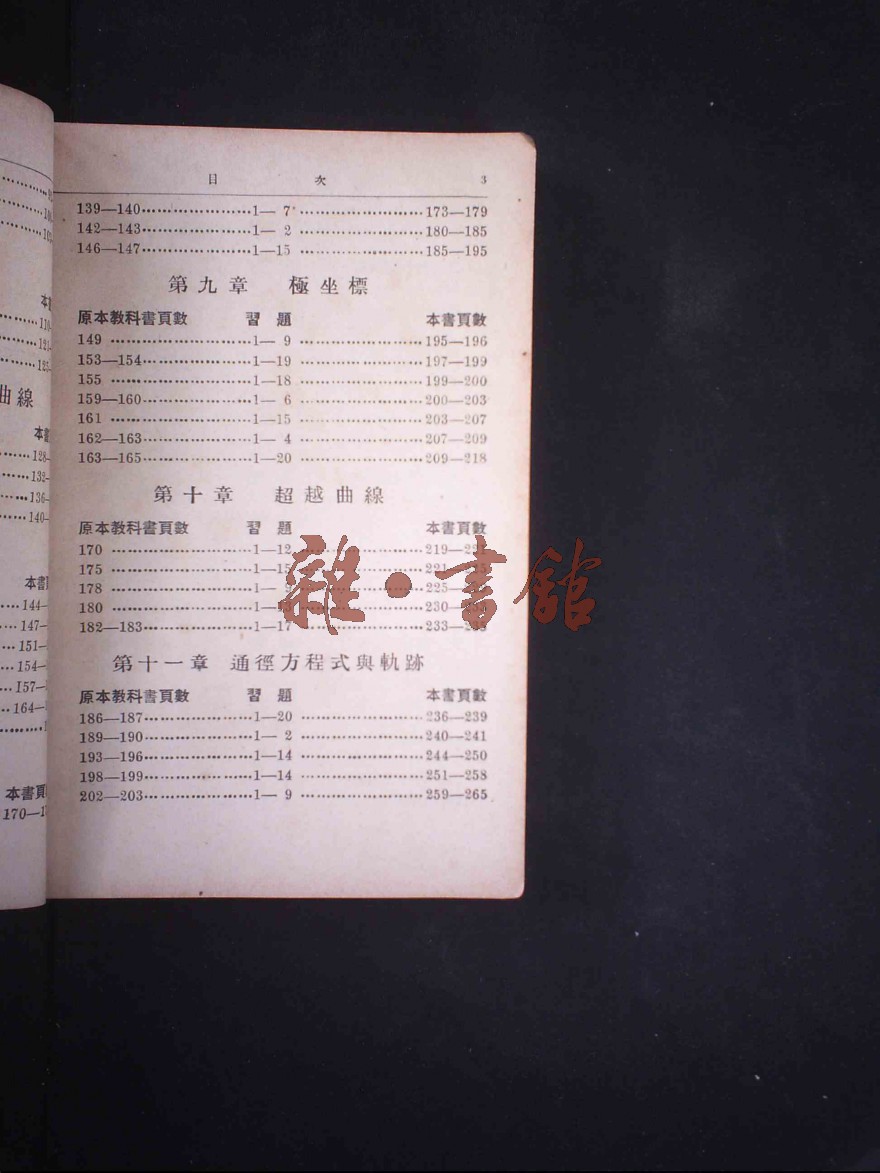 目 次 3
139—140……………………1— 7 ………………………173—179
142—143……………………1— 2 ………………………180—185
146—147……………………1—15 ………………………185—195
第九章 極坐標
原本教科書頁數 習 題 本書頁數
149 ……………………1— 9 ………………………195—196
153—154……………………1—19 ………………………197—199
155 ……………………1—18 ………………………199—200
159—160……………………1— 6 ………………………200—203
161 ……………………1—15 ………………………203—207
162—163……………………1— 4 ………………………207—209
163—165……………………1—20 ………………………209—218
第十章 超越曲線
原本教科書頁數 習 題 本書頁數
170 ……………………1—12 ………………………219—
175 ……………………1— ………………………221—
178 ……………………1— ………………………225—
180 ……………………1— ………………………230—
182—183……………………1—17 ………………………233—
雜·書館
第十一章 通徑方程式與軌跡
原本教科書頁數 習 題 本書頁數
186—187……………………1—20 ………………………236—239
189—190……………………1— 2 ………………………240—241
193—196……………………1—14 ………………………244—250
198—199……………………1—14 ………………………251—258
202—203……………………1— 9 ………………………259—265
曲線
144—
147—
151—
154—
157—
164—
本書頁
170—